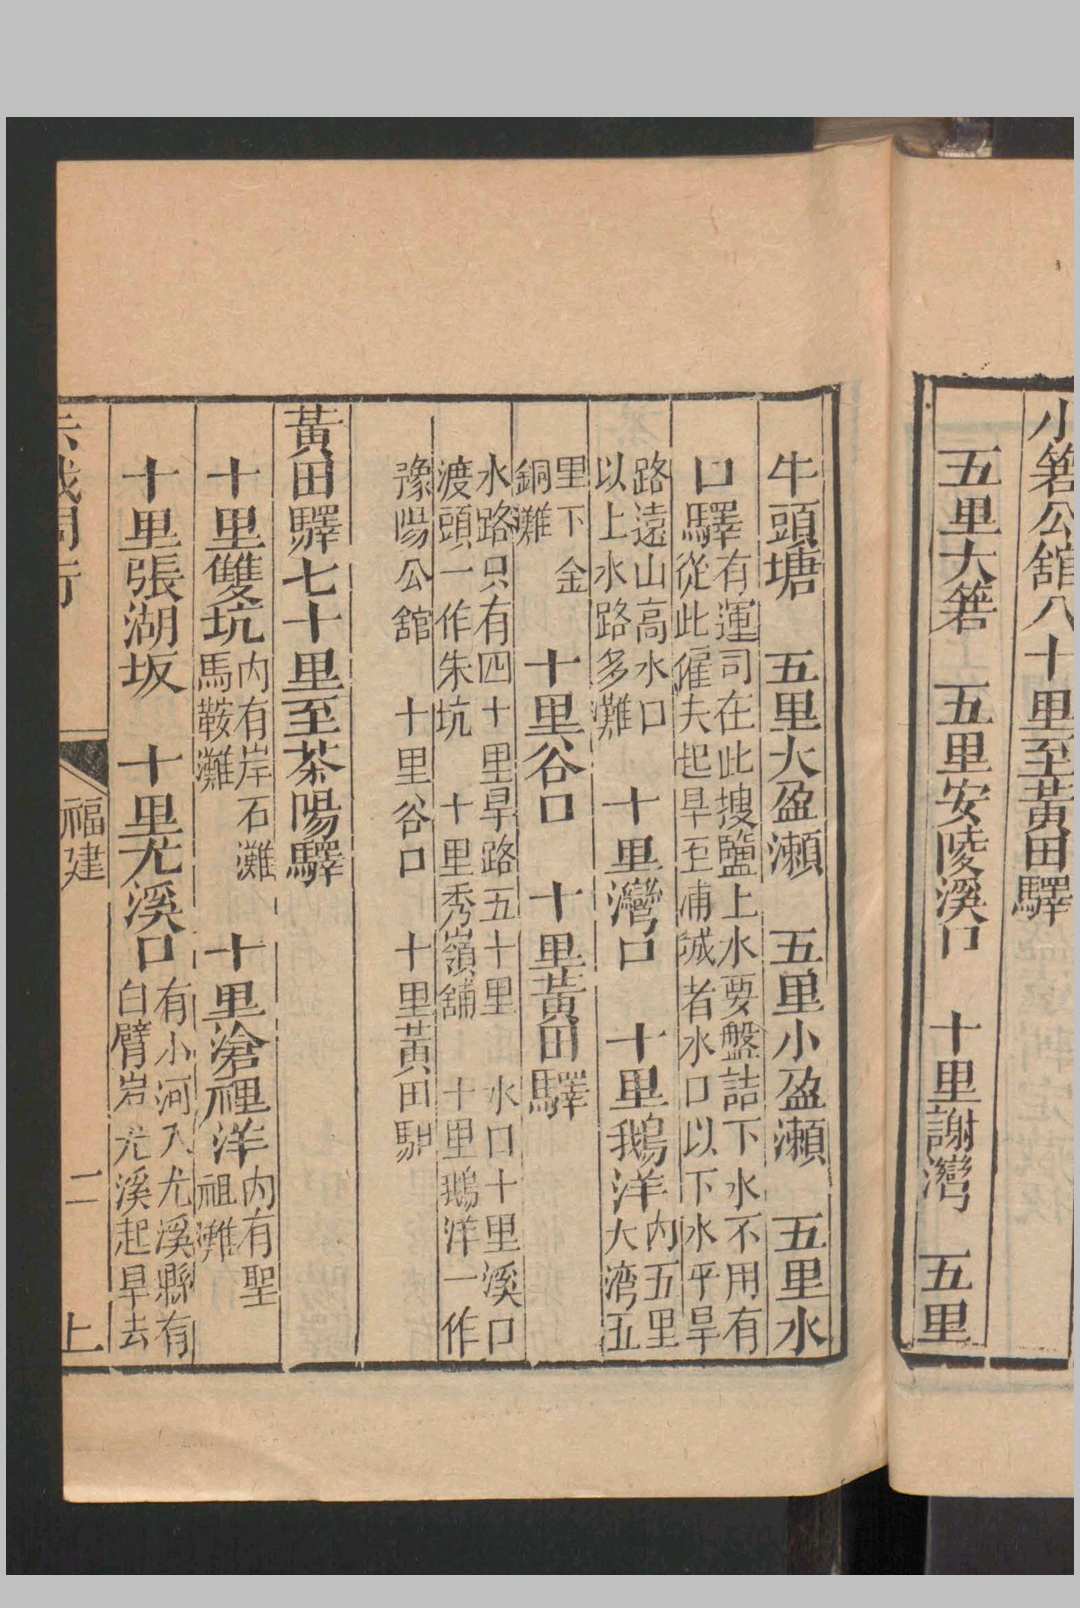 小箬公舘八十里至黃田驛
五里大箬　五里安陵溪口　十里謝灣　五里
牛頭塘　五里大盈瀬　五里小盈瀬　五里水
口驛有運司在此搜鹽上水要盤詰下水不用有
從此僱夫起旱至浦城者水口以下水平旱
路遠山高水口
以上水路多灘　十里灣口　十里鵝洋内五里
大湾五
里下金
銅灘　十里谷口　十里黃田驛
水路只有四十里旱路五十里　水口十里溪口
渡頭一作朱坑　十里秀嶺舖　十里鵝洋一作
豫陽公舘　十里谷口　十里黃田馹
黃田驛七十里至茶陽驛
十里雙坑内有岸石灘
馬鞍灘　十里滄裡洋内有聖
祖灘
十里張湖坂　十里尤溪口有小河入尤溪縣有
白臂岩尤溪起旱去
福建　二　上